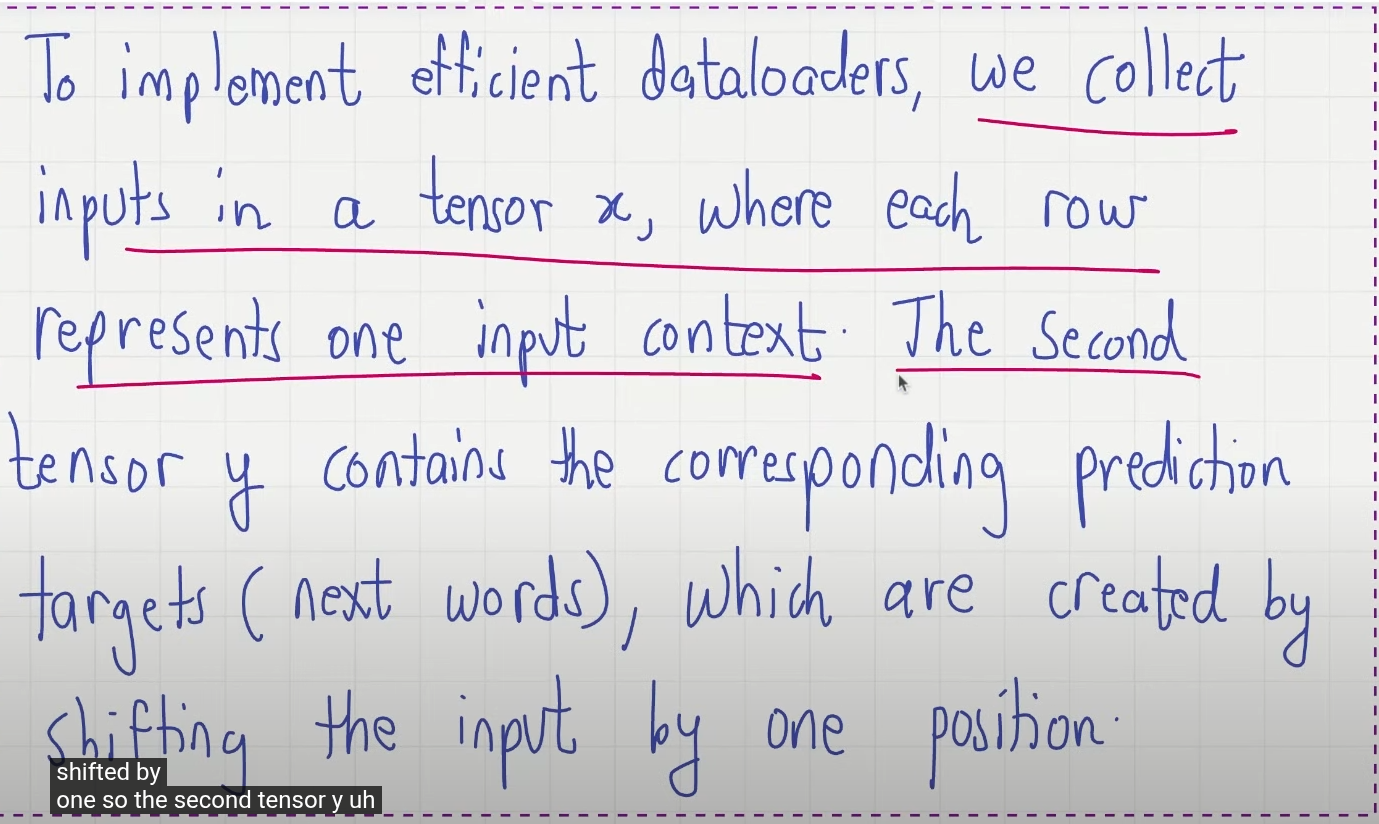 To implement efficient dataloaders, we collect
inputs in a tensor x, where each row
represents one input context. The second
tensor y contains the corresponding prediction
targets (next words), which are created by
shifting the input by one position.
shifted by
one so the second tensor y uh